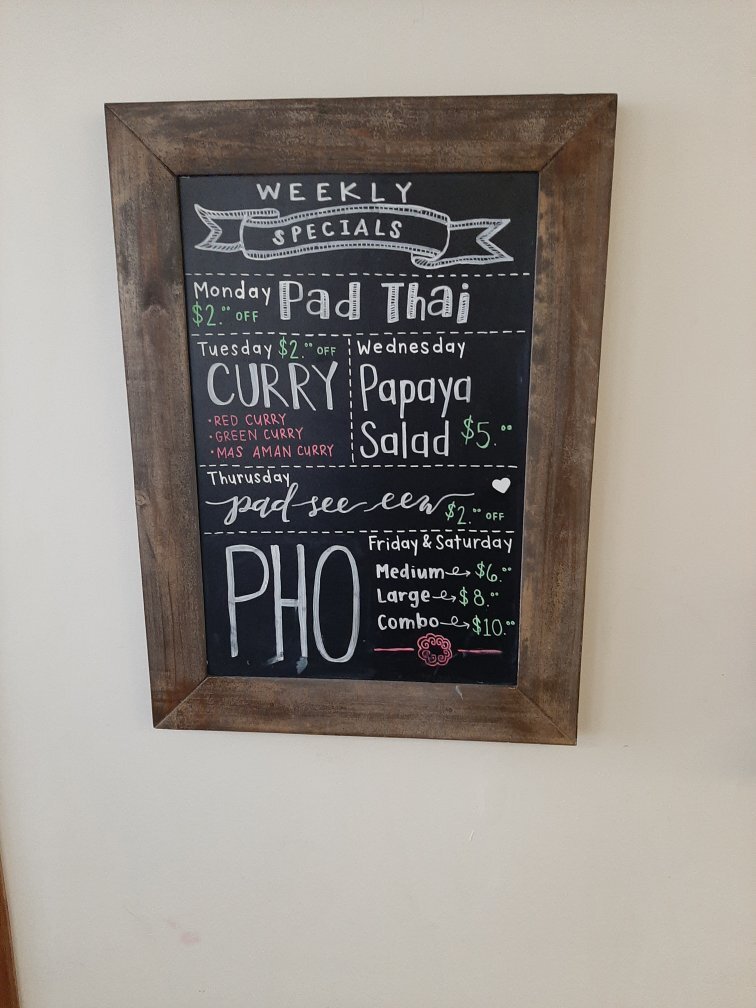 WEEKLY
SPECIALS
Monday
$2.00 OFF
Pad Thai
Tuesday $2.00 OFF
CURRY
•RED CURRY
•GREEN CURRY
•MAS AMAN CURRY
Wednesday
Papaya
Salad $5.00
Thurusday
pad-see-eew $2.00 OFF
PHO
Friday & Saturday
Medium $6.00
Large $8.00
Combo $10.00